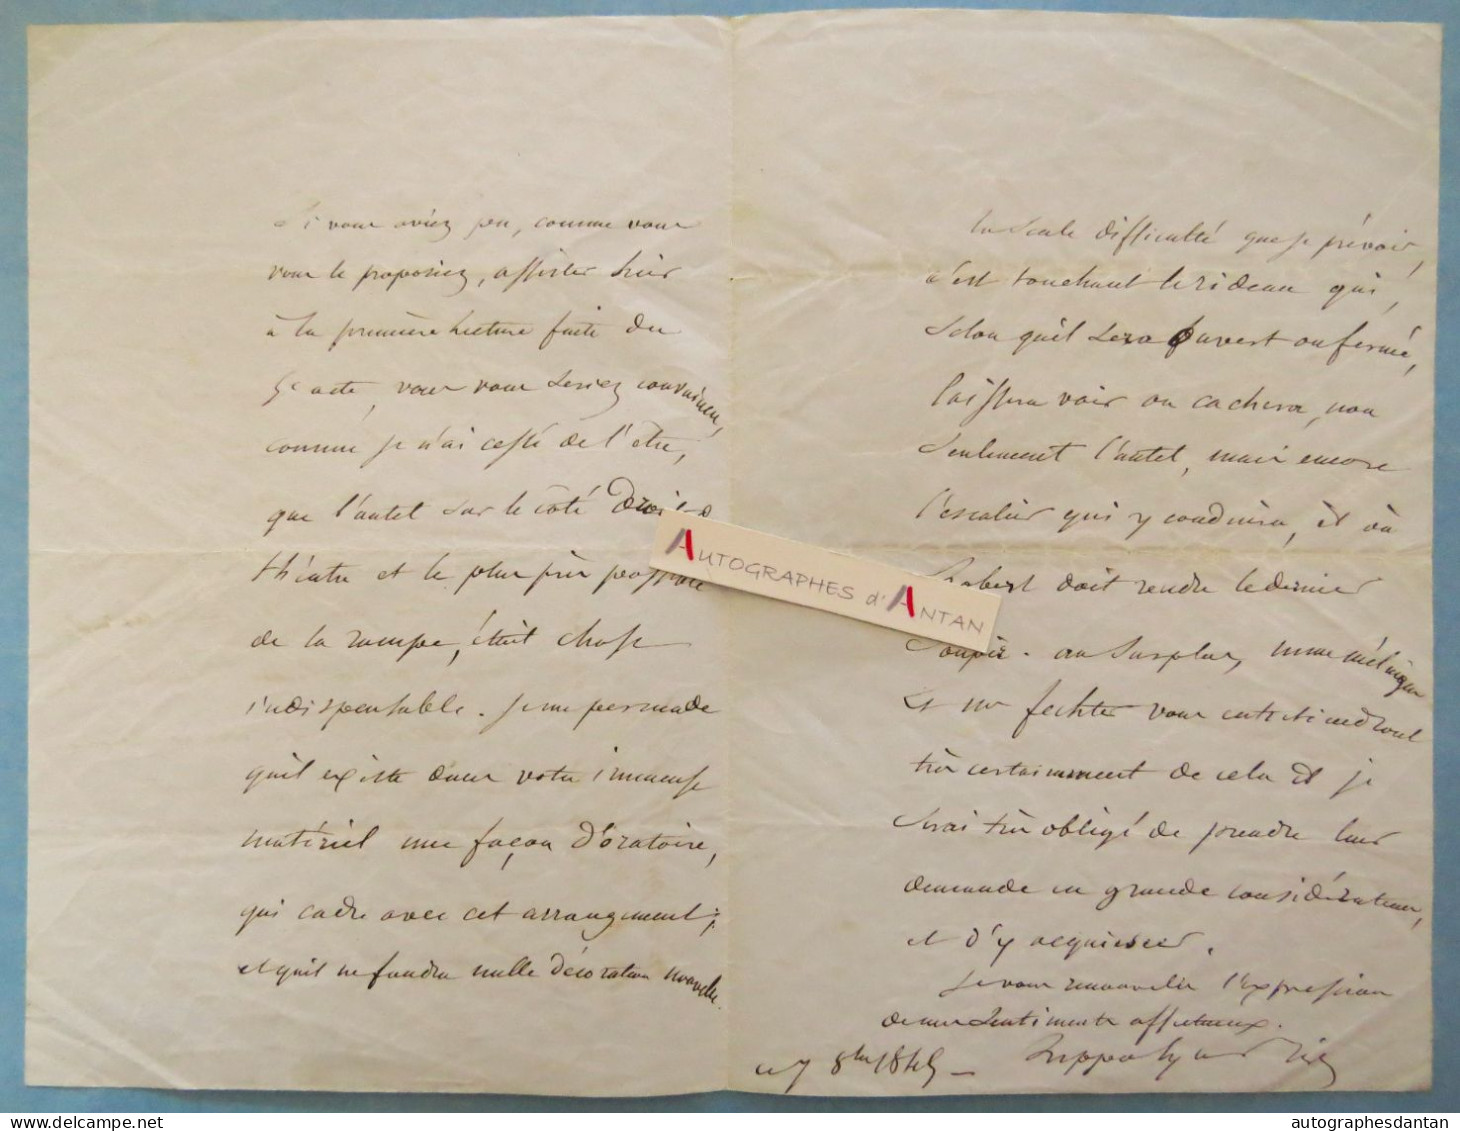 Si vous aviez pu, comme vous
vous le proposiez, assister hier
à la première lecture faite du
5e acte, vous vous seriez convaincu,
comme je n'ai cessé de l'être,
que l'autel sur le côté droit du
théâtre et le plus près possible
de la rampe, était chose
indispensable. Je me persuade
qu'il existe dans votre immense
matériel une façon d'oratoire,
qui cadre avec cet arrangement;
et qu'il ne faudra nulle décoration nouvelle.
La seule difficulté que je prévois,
c'est touchant le rideau qui,
selon qu'il sera ouvert ou fermé,
laissera voir ou cachera, non
seulement l'autel, mais encore
l'escalier qui y conduira, et où
Robert doit rendre le dernier
soupir. au surplus, mme mélingue
et mr fechter vous entretiendront
très certainement de cela et je
serai très obligé de prendre leur
demande en grande considération,
et d'y acquiescer.
Je vous renouvelle l'expression
de mes sentiments affectueux.
ce 7 8bre 1845 —
AUTOGRAPHES d'ANTAN
autographesdantan